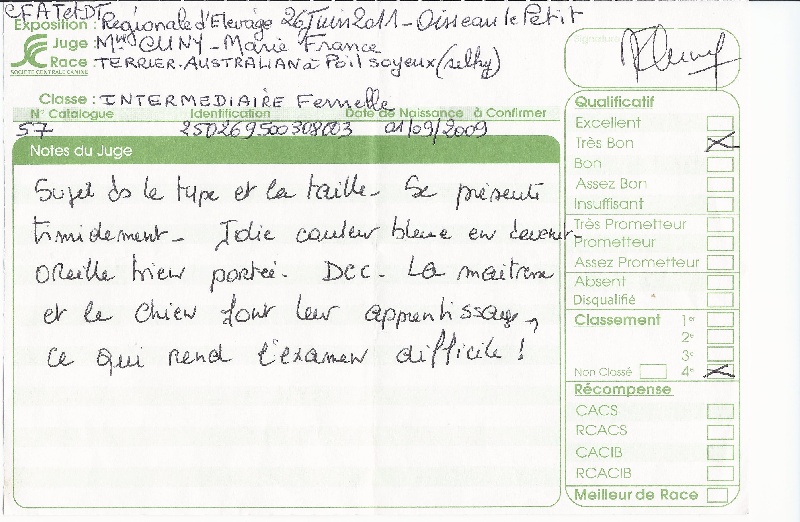 CFATetDT
Exposition : Régionale d'Elevage 26 Juin 2011 - Oisseau le Petit
Juge : Mme CUNY - Marie France
Race : TERRIER-AUSTRALIAN à Poil soyeux (silky)
SOCIETE CENTRALE CANINE
Classe : INTERMEDIAIRE Femelle
N° Catalogue Identification Date de Naissance à Confirmer
57 250269500308003 01/09/2009
Notes du Juge
Sujet ds le type et la taille - Se présente
timidement - Jolie couleur bleue en devenir -
Oreille bien portée - DCC - La maitresse
et le chien font leur apprentissage,
ce qui rend l'examen difficile !
Signature
Qualificatif
Excellent
Très Bon
Bon
Assez Bon
Insuffisant
Très Prometteur
Prometteur
Assez Prometteur
Absent
Disqualifié *
Classement 1e
2e
3e
Non Classé 4e
Récompense
CACS
RCACS
CACIB
RCACIB
Meilleur de Race